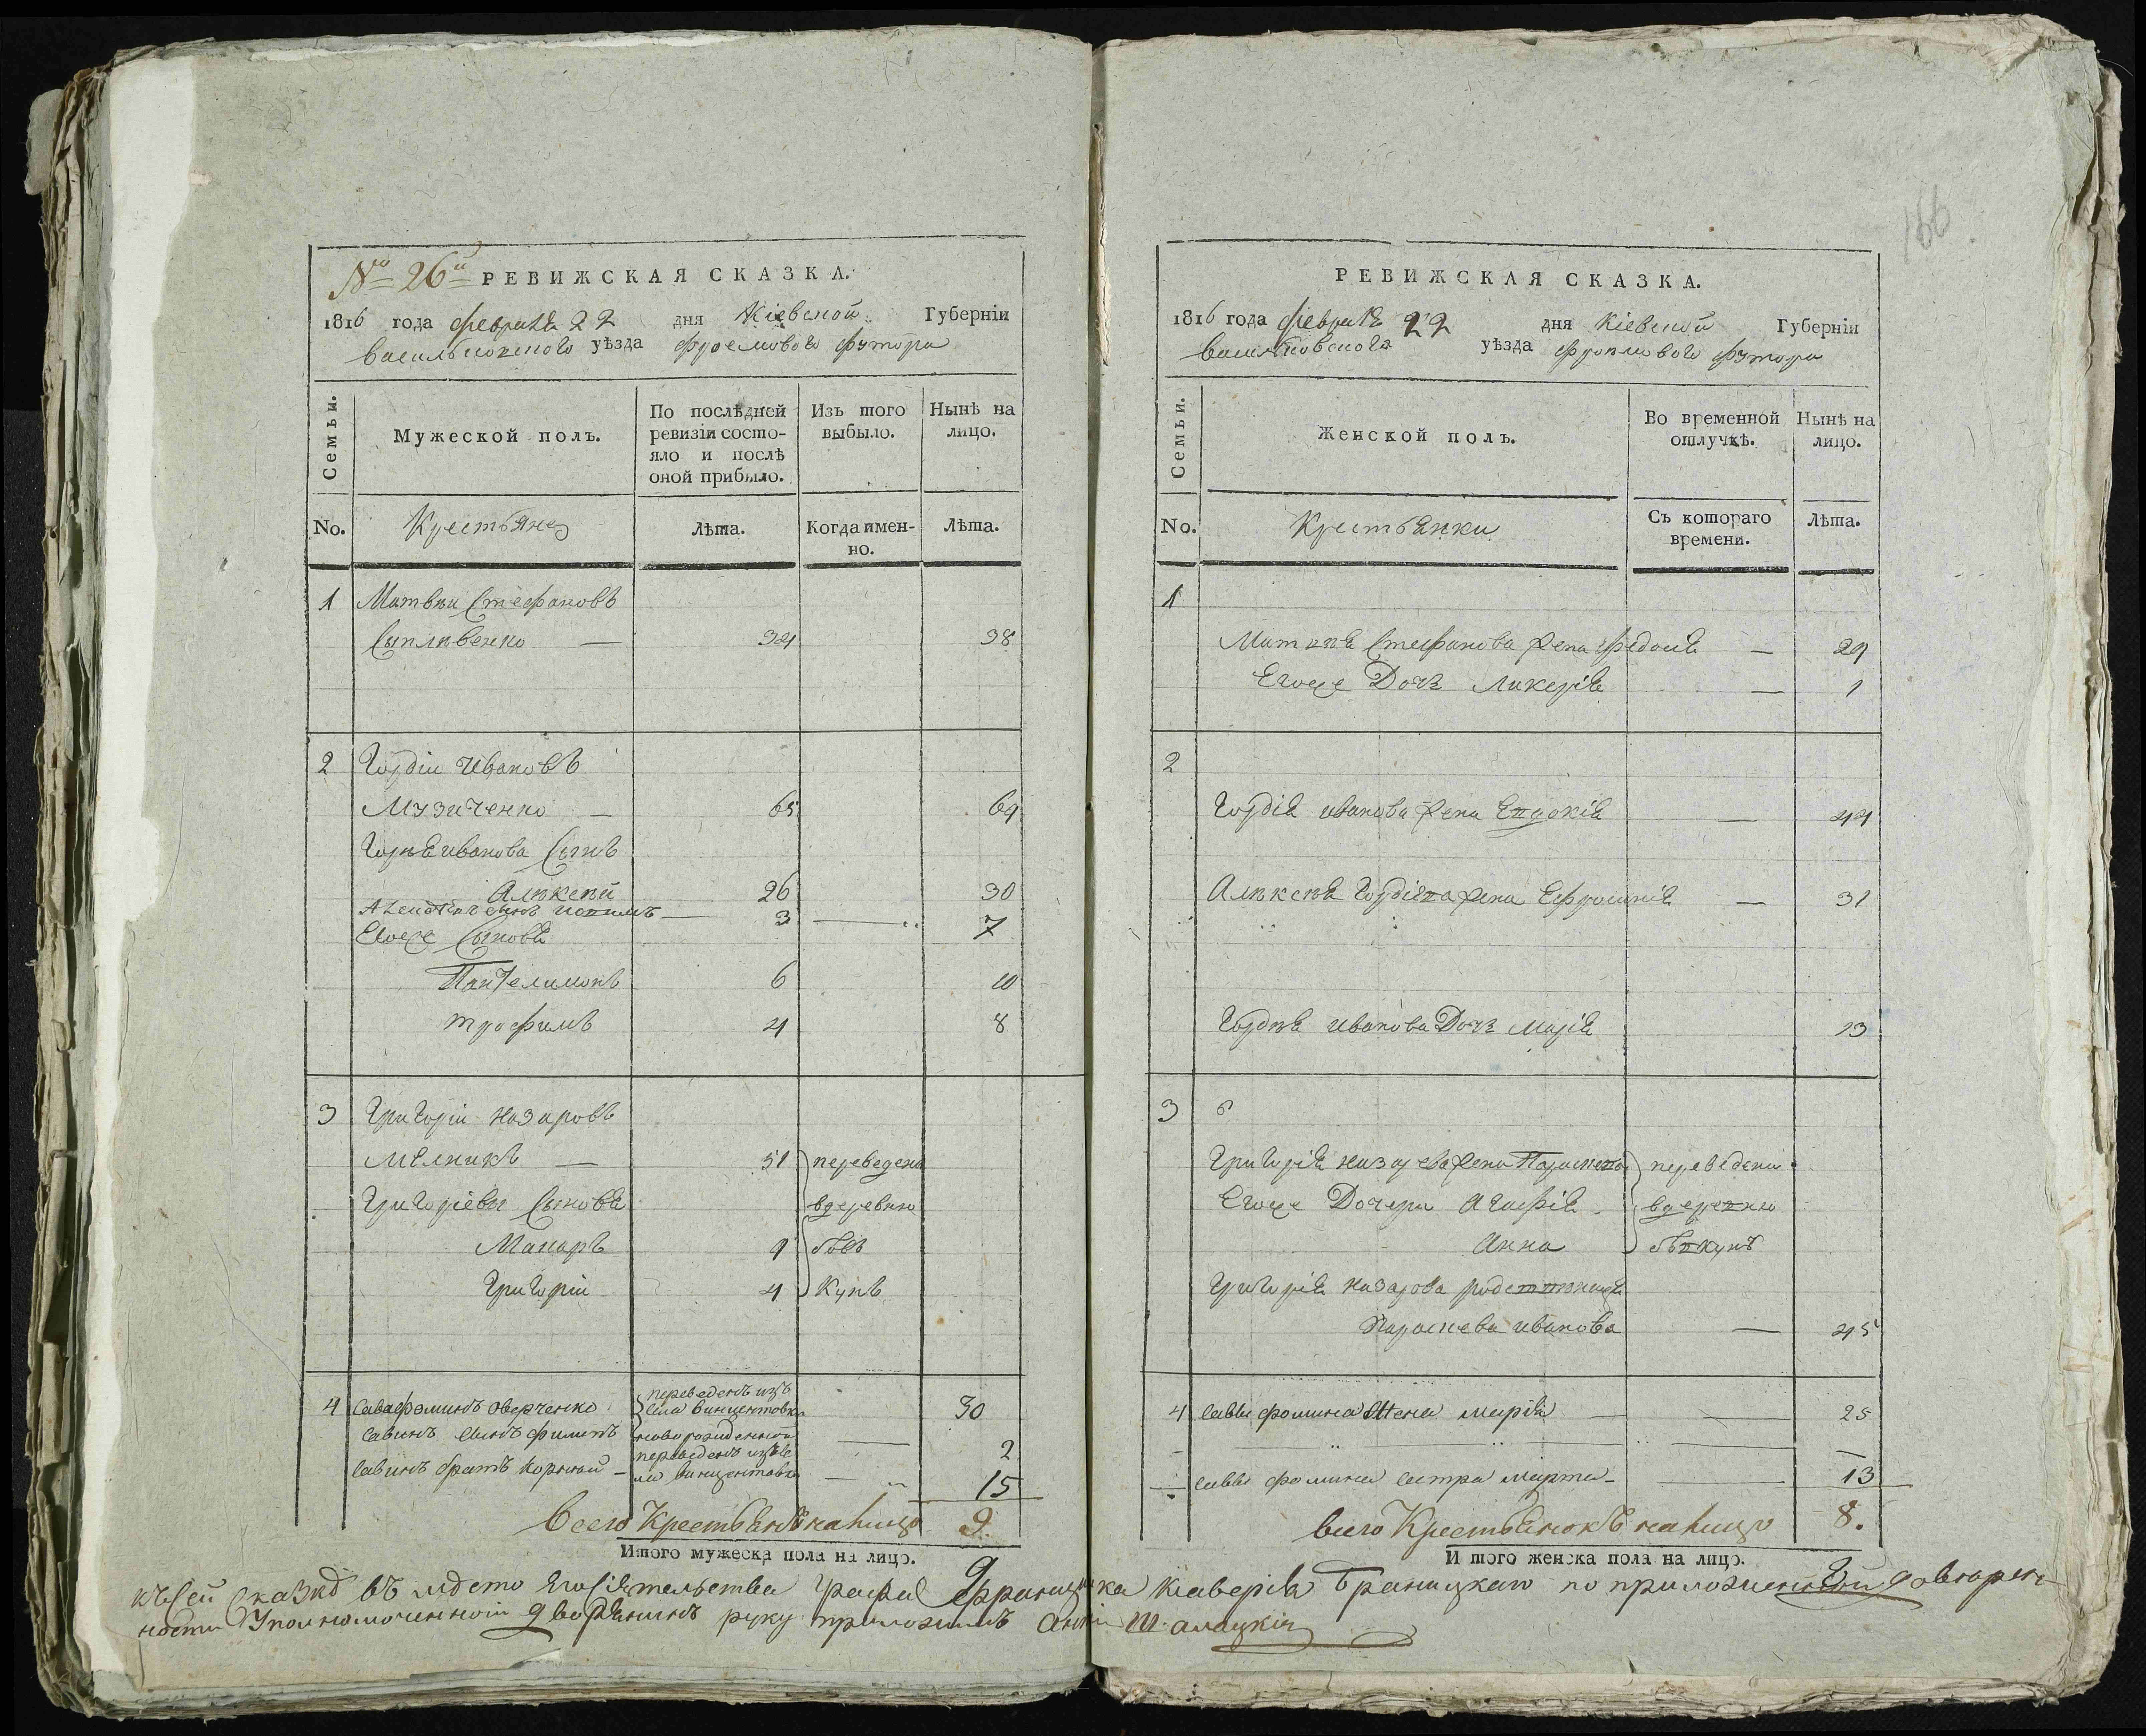 № 26й РЕВИЖСКАЯ СКАЗКА.
1816 года февраля 22 дня Кіевской Губерніи
Васильковского уѣзда Фроемового футора
Семьи.
Мужеской полъ.
По послѣдней ревизіи состояло и послѣ оной прибыло.
Изъ того выбыло.
Нынѣ на лицо.
No. Крестьяне Лѣта. Когда именно. Лѣта.
1 Матвѣи Стефановъ
Сыплѣвенко — 34 38
2 Гордіи Ивановъ
Музиченко — 65 69
Гордѣя иванова Сынъ
Алѣксѣй 26 30
Алексѣя сынъ — 3 — 7
Егоже Сыновя
Пантелимонъ 6 10
трофимъ 4 8
3 Григоріи Назаровъ
Мелникъ — 51 переведены
Григоріевы Сыновя вдеревню
Макаръ 9 бѣв
Григоріи 4 Кунъ
4 Сава фоминъ Оверченко переведенъ изъ села винцентовки — 30
Савинъ Сынъ филипъ новорожденной — 2
Савинъ братъ Корней — переведенъ изъ села винцентовки — 15
Всего Крестьянъ на лицо 9.
Итого мужеска пола на лицо.
166
РЕВИЖСКАЯ СКАЗКА.
1816 года февраля 22 дня Кіевской Губерніи
Васильковского уѣзда футора
Семьи.
Женской полъ.
Во временной отлучкѣ.
Нынѣ на лицо.
No. Крестьянки Съ котораго времени. Лѣта.
1
Матвѣя Стефанова Жена Федосія — 29
Егоже Дочь Ликерія — 1
2
Гордія иванова Жена Евдокія — 44
Алѣксѣя Гордіева Жена Ефросинія — 31
Гордѣя иванова Дочь Марія 13
3
Григорія Назарова Жена Параскева переведены
Егоже Дочери Агафія вдеревню
Анна бѣвкунъ
Григорія Назарова
Параскева иванова — 45
4 Саввы фомина Жена Марія — 25
Саввы фомина Сестра Марта — 13
Всего Крестьянокъ на лицо 8.
Итого женска пола на лицо.
къ сей сказкѣ въ мѣсто Его Сіятельства Графа Францишка Ксаверія Браницкаго по приложенной довѣрен-
ности Уполномоченной дворянинъ руку приложилъ